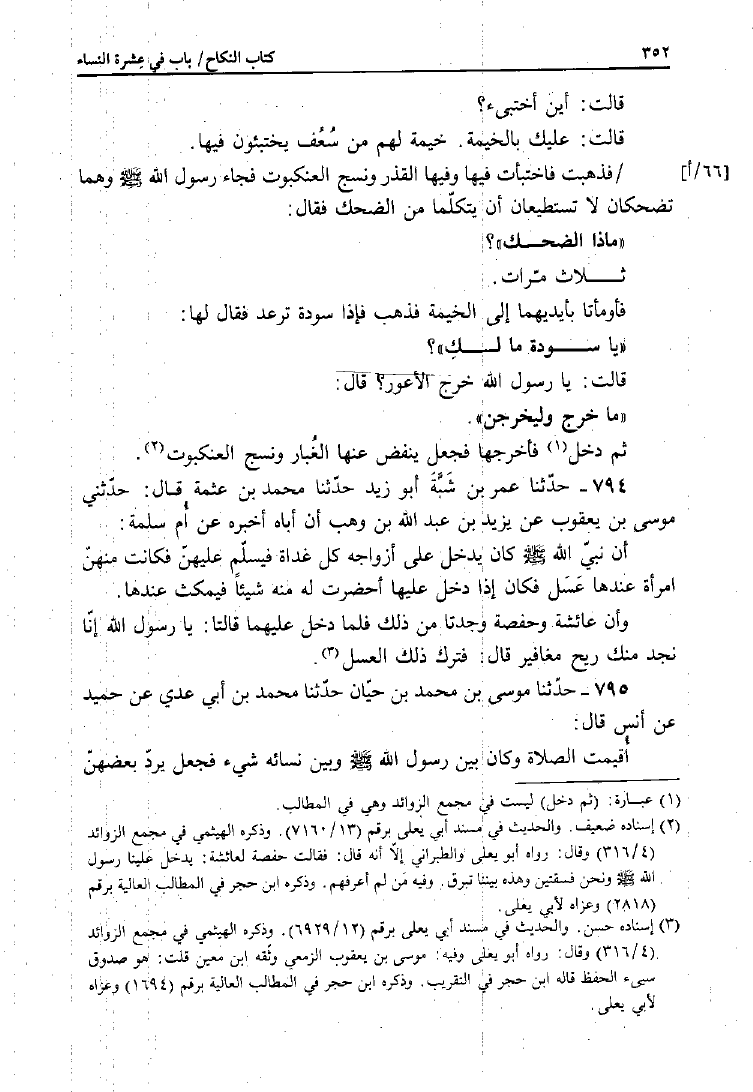 ٣٥٢
كتاب النكاح/ باب في عِشرة النساء
قالت: أين أختبىء؟
قالت: عليك بالخيمة. خيمة لهم من سُعُف يختبئون فيها.
[٦٦/أ] /فذهبت فاختبأت فيها وفيها القذر ونسج العنكبوت فجاء رسول الله ﷺ وهما
تضحكان لا تستطيعان أن يتكلّما من الضحك فقال:
«ماذا الضحـــك»؟
ثـــــلاث مرّات.
فأومأتا بأيديهما إلى الخيمة فذهب فإذا سودة ترعد فقال لها:
«يا ســـــودة ما لـــــكِ»؟
قالت: يا رسول الله خرج الأعور؟ قال:
«ما خرج وليخرجن».
ثم دخل(١) فأخرجها فجعل ينفض عنها الغُبار ونسج العنكبوت(٢).
٧٩٤ - حدّثنا عمر بن شَبَّةَ أبو زيد حدّثنا محمد بن عثمة قال: حدّثني
موسى بن يعقوب عن يزيد بن عبد الله بن وهب أن أباه أخبره عن أم سلمة:
أن نبيّ الله ﷺ كان يدخل على أزواجه كل غداة فيسلّم عليهنّ فكانت منهنّ
امرأة عندها عَسَل فكان إذا دخل عليها أحضرت له منه شيئاً فيمكث عندها.
وأن عائشة وحفصة وجدتا من ذلك فلما دخل عليهما قالتا: يا رسول الله إنّا
نجد منك ريح مغافير قال: فترك ذلك العسل(٣).
٧٩٥ - حدّثنا موسى بن محمد بن حيّان حدّثنا محمد بن أبي عدي عن حميد
عن أنس قال:
أُقيمت الصلاة وكان بين رسول الله ﷺ وبين نسائه شيء فجعل يردّ بعضهنّ
(١) عبــارة: (ثم دخل) ليست في مجمع الزوائد وهي في المطالب.
(٢) إسناده ضعيف. والحديث في مسند أبي يعلى برقم (٧١٦٠/١٣). وذكره الهيثمي في مجمع الزوائد
(٣١٦/٤) وقال: رواه أبو يعلى والطبراني إلّا أنه قال: فقالت حفصة لعائشة: يدخل علينا رسول
الله ﷺ ونحن فسقتين وهذه بيننا تبرق. وفيه مَن لم أعرفهم. وذكره ابن حجر في المطالب العالية برقم
(٢٨١٨) وعزاه لأبي يعلى.
(٣) إسناده حسن. والحديث في مسند أبي يعلى برقم (٦٩٢٩/١٢). وذكره الهيثمي في مجمع الزوائد
(٣١٦/٤) وقال: رواه أبو يعلى وفيه: موسى بن يعقوب الزمعي وثّقه ابن معين قلت: هو صدوق
سيىء الحفظ قاله ابن حجر في التقريب. وذكره ابن حجر في المطالب العالية برقم (١٦٩٤) وعزاه
لأبي يعلى.